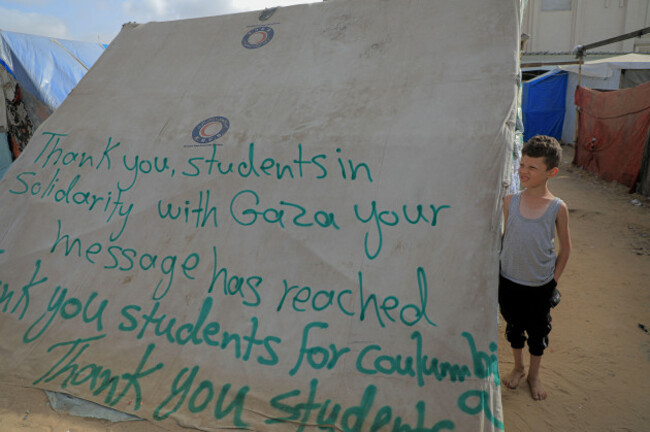 Thank you, students in
Solidarity with Gaza your
message has reached
nk you students for coulumbi
a
Thank You students